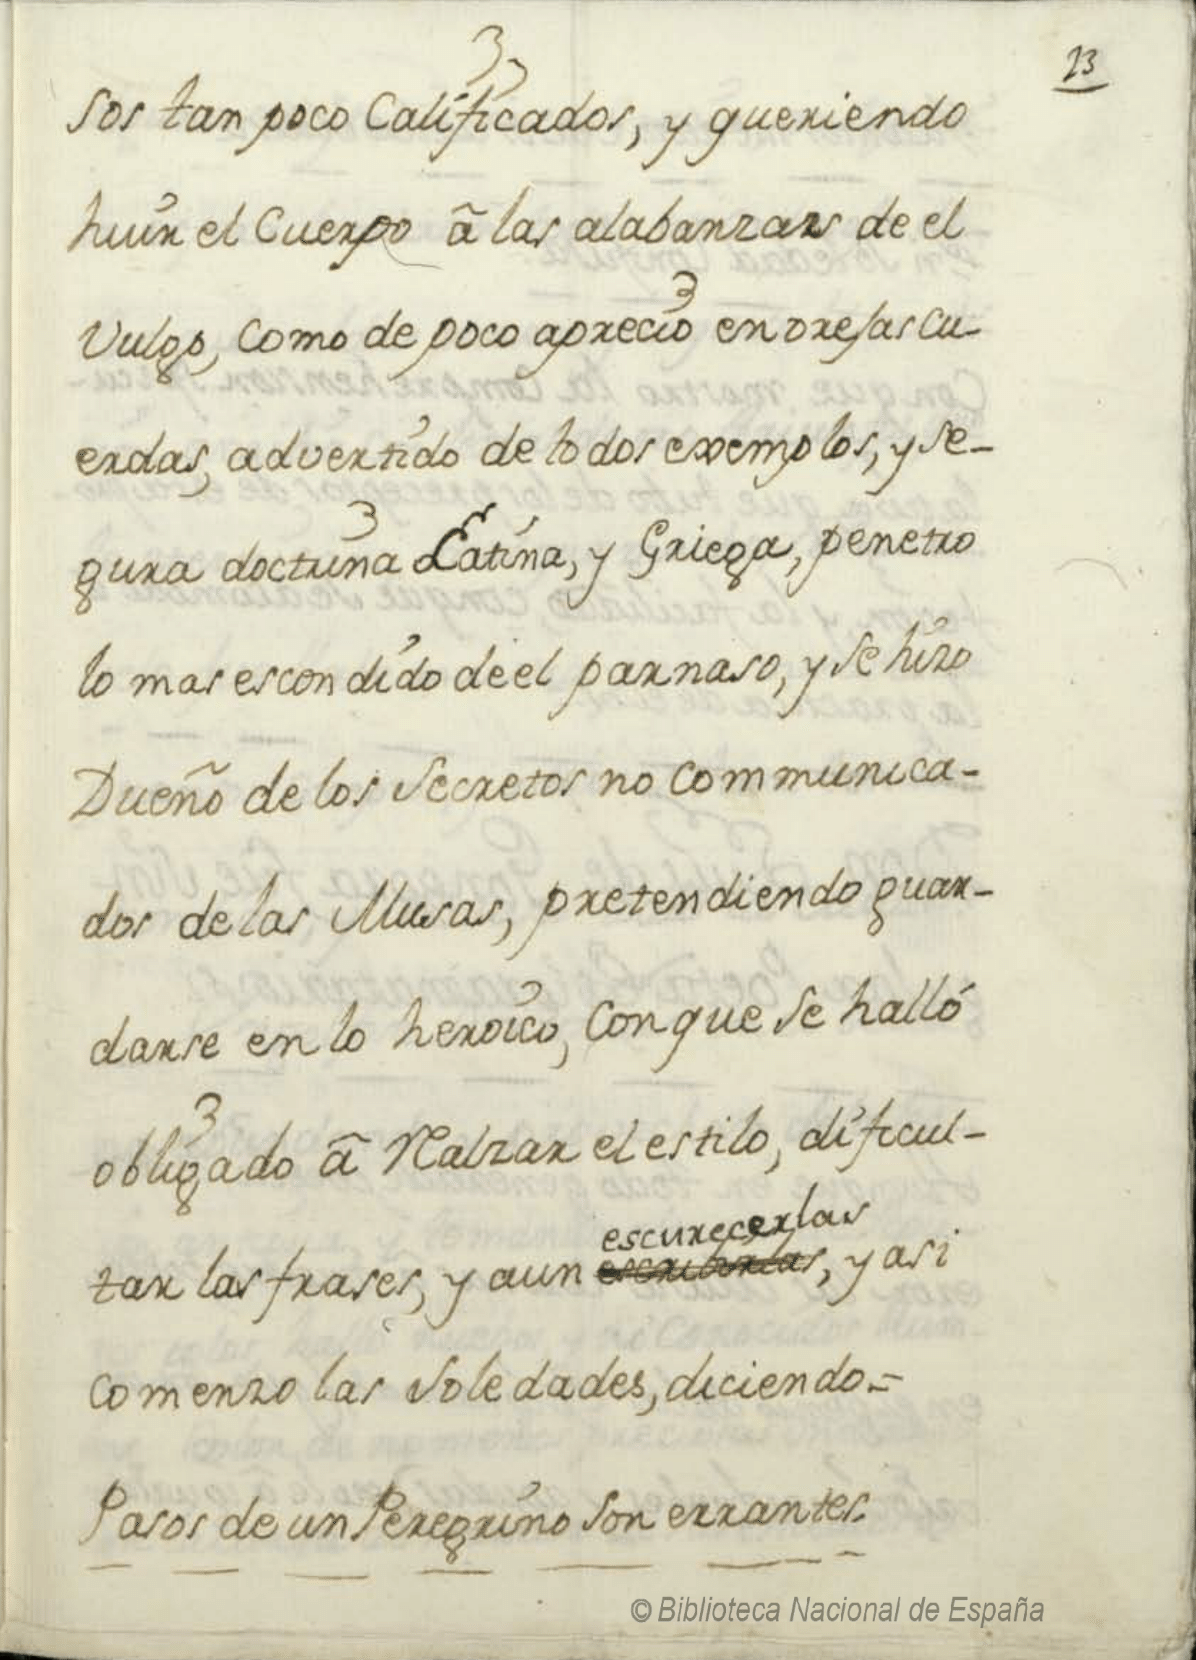 23
sos tan poco Calificados, y queriendo
huir el Cuerpo ã las alabanzas de el
Vulgo, Como de poco aprecio en orejas Cu-
erdas, advertido de todos exemplos, y se-
gura doctrina Latina, y Griega, penetro
lo mas escondido de el parnaso, y se hizo
Dueño de los Secretos no communica-
dos de las Musas, pretendiendo guar-
darse en lo heroico, Con que se halló
obligado ã Realzar el estilo, dificul-
escurecerlas
tar las frases, y aun escribirlas, y asi
Comenzo las Soledades, diciendo.=
Pasos de un Peregrino son errantes.
© Biblioteca Nacional de España